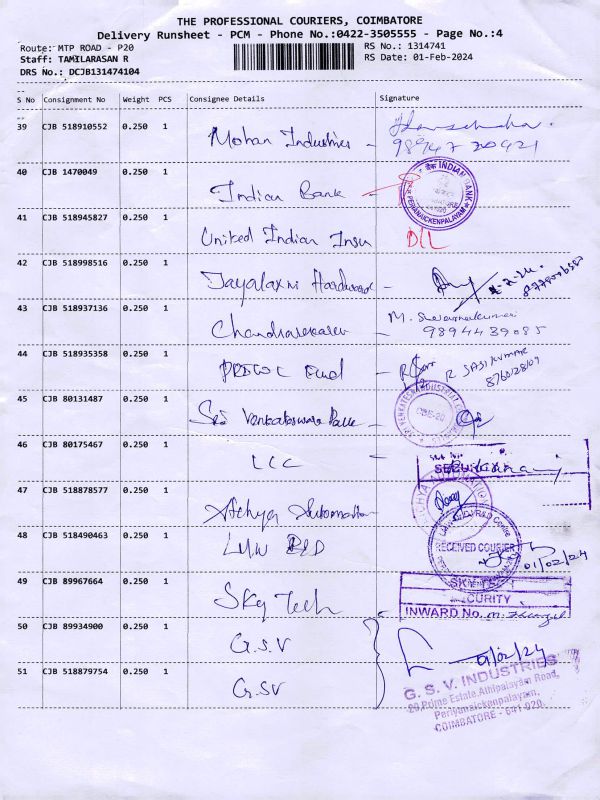 THE PROFESSIONAL COURIERS, COIMBATORE
Delivery Runsheet - PCM - Phone No.:0422-3505555 - Page No.:4
Route: MTP ROAD - P20 RS No.: 1314741
Staff: TAMILARASAN R RS Date: 01-Feb-2024
DRS No.: DCJB131474104
S No Consignment No Weight PCS Consignee Details Signature
39 CJB 518910552 0.250 1 Mohan Industries -
98947 20421
40 CJB 1470049 0.250 1 Indian Bank -
INDIAN BANK PERIYANAICKENPALAYAM
41 CJB 518945827 0.250 1 United Indian Insu
42 CJB 518998516 0.250 1 Jayalaxmi Hardware -
43 CJB 518937136 0.250 1 Chandrasekaran - M.
9894439085
44 CJB 518935358 0.250 1 - R SASIKUMAR
45 CJB 80131487 0.250 1 Sri Venkateswara -
46 CJB 80175467 0.250 1 LLC -
47 CJB 518878577 0.250 1 Athya Automation
48 CJB 518490463 0.250 1 LMW
RECEIVED COURIER
01/02/24
49 CJB 89967664 0.250 1 Sky Tech
SECURITY
INWARD No.
50 CJB 89934900 0.250 1 G.S.V
01/02/24
51 CJB 518879754 0.250 1 G.SV
G. S. V. INDUSTRIES
Prime Estate, Athipalayam Road,
Periyanaickenpalayam,
COIMBATORE - 641 020.